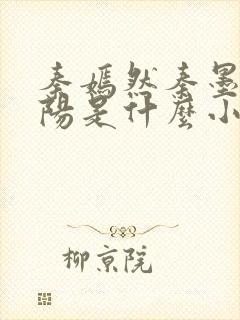 秦嫣然秦墨
阳是什麽小
柳京院